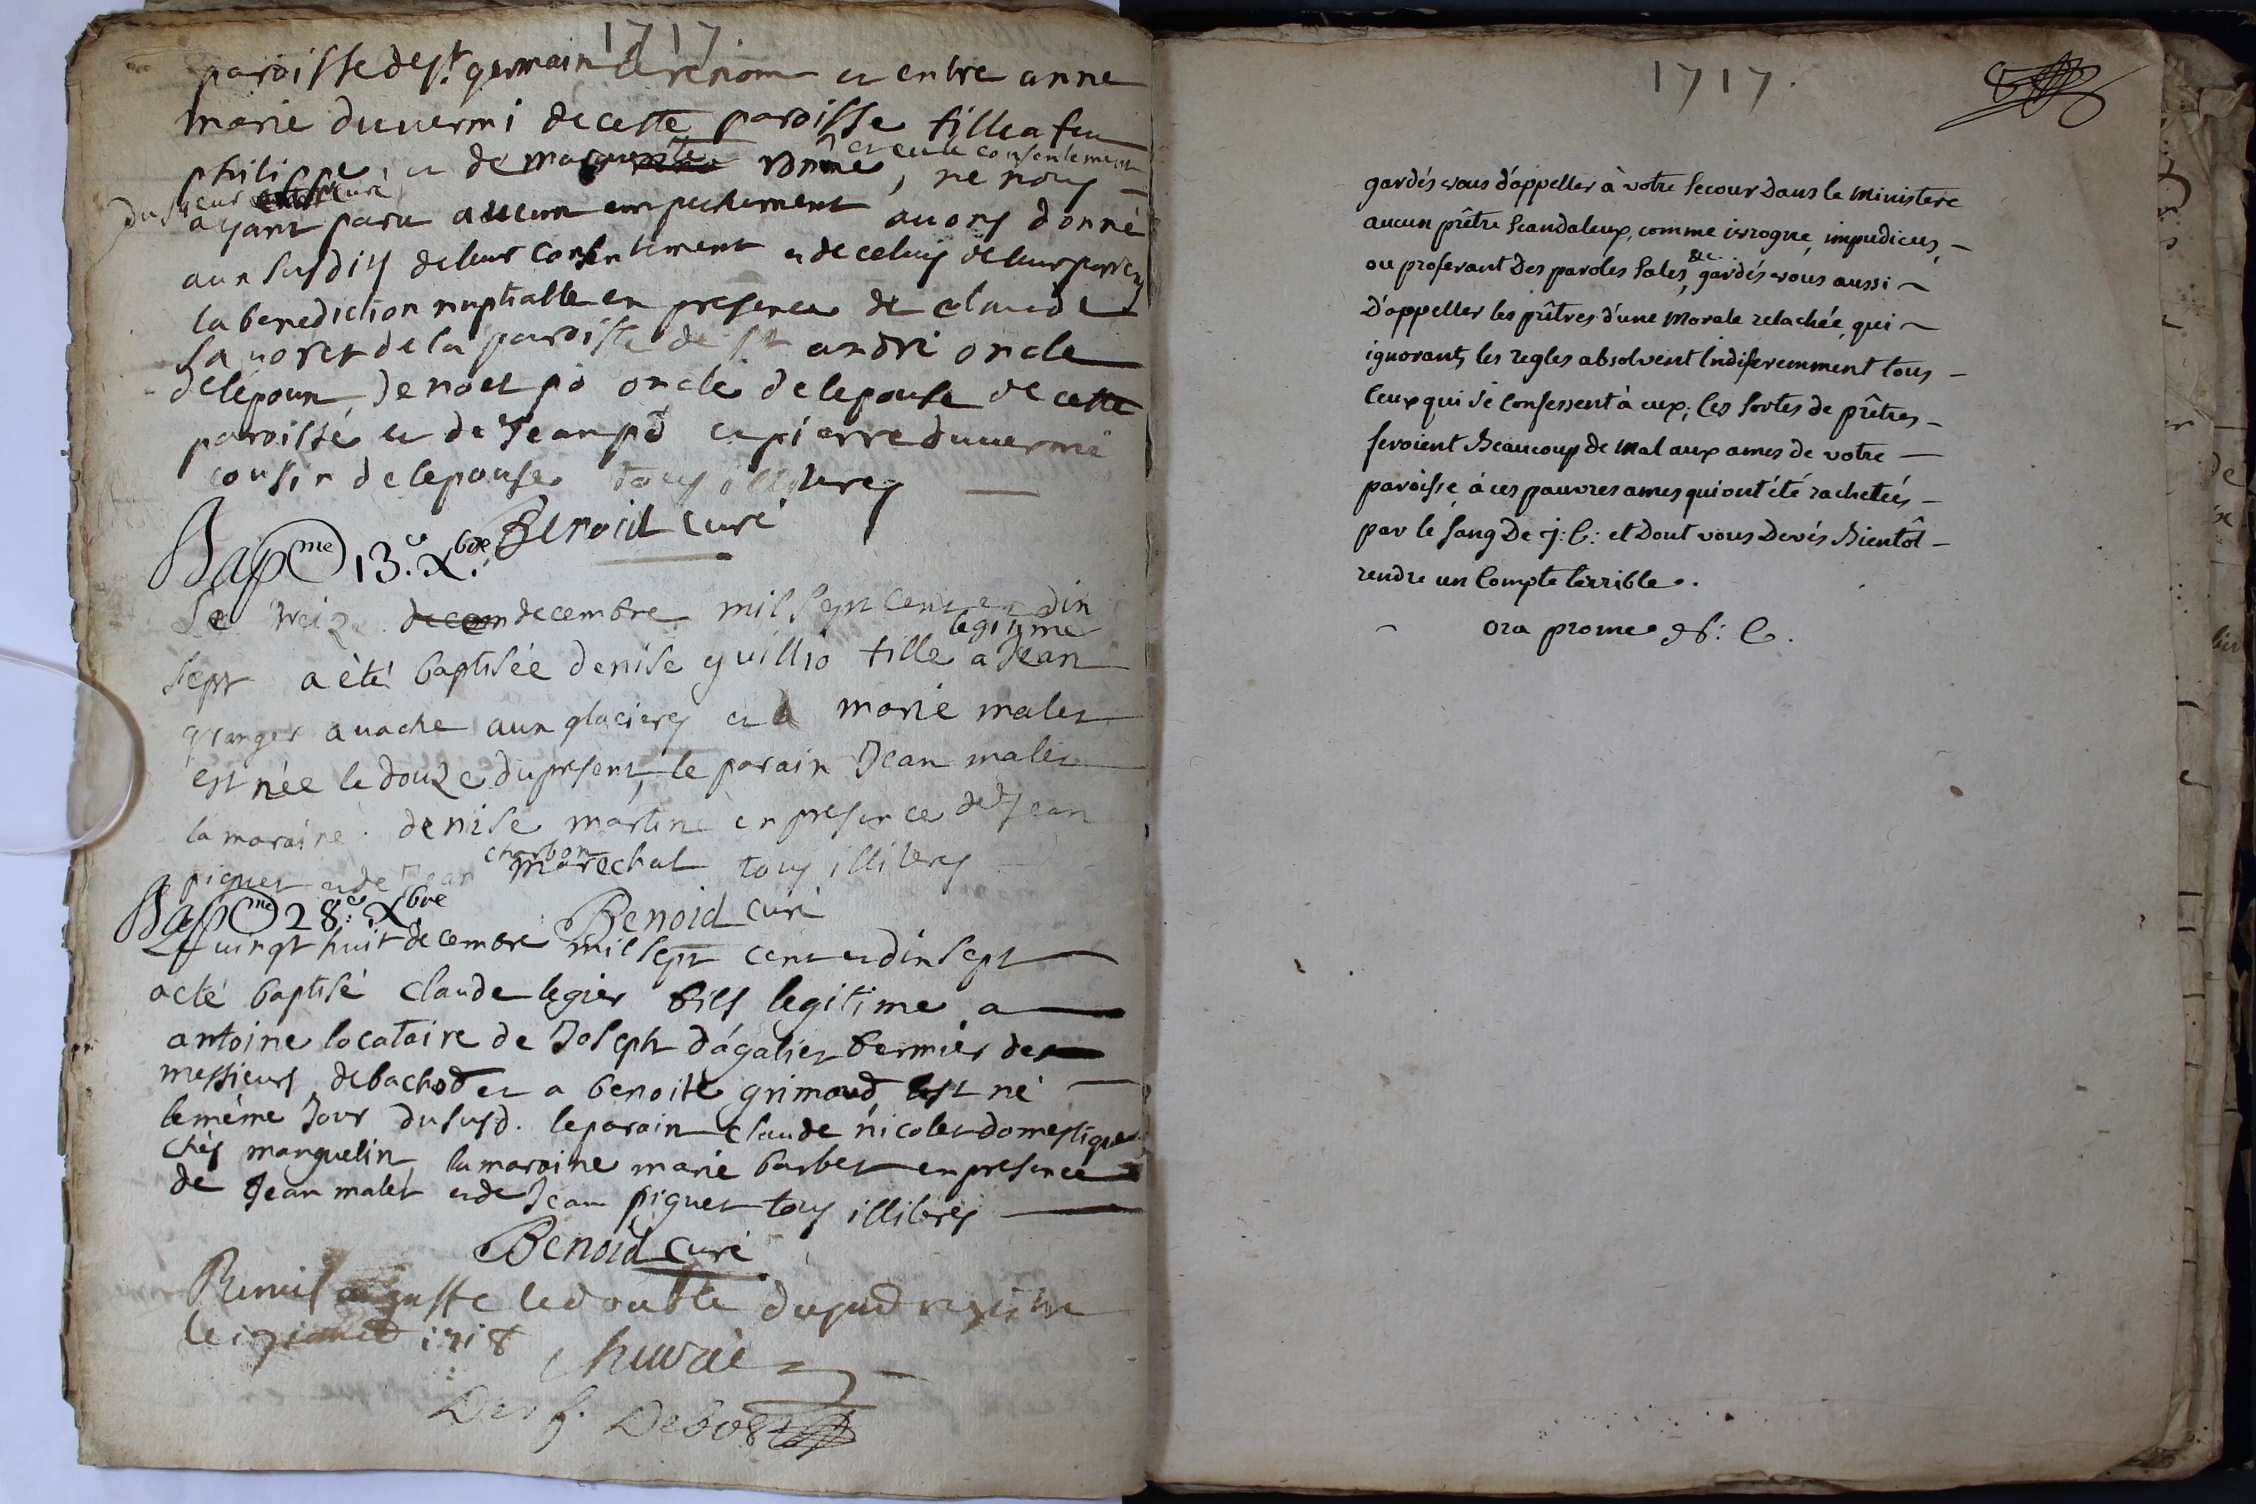 1717
paroisse de st germain de renom et entre anne
marie duvermi de cette paroisse fille a feu
philippe et de marguerite et eu le consentement
du sieur curé ne nous
ayant paru aucun empechement avons donné
aux susdits de leur consentement et de celuy de leur parens
la benediction nuptialle en presence de claude
savoret de la paroisse de st andré oncle
de lepoux, de noel po oncle de lepouse de cette
paroisse et de Jean po et pierre duvermi
cousin de lepouse tous illiterés
Benoid curé
Bapme 13.e Xbre
Le treize decembre mil sept cent et dix
sept a été baptisée denise guillio fille legitime a Jean
granger a vache aux glacieres et a marie malet
est née le douze du present, le parain Jean malet
la maraine denise martine en presence de Jean
piquet et de Jean charbon marechal tous illiterés
Benoid curé
Bapme 28.e Xbre
Le vingt huit decembre mil sept cent et dix sept
a eté baptisé claude legier fils legitime a
antoine locataire de Joseph dagalier fermier des
messieurs debachod et a benoite grimaud, est né
le même Jour du susd. le parain claude nicolet domestique
chés manguelin, la maraine marie barbet en presence
de Jean malet et de Jean piquet tous illiterés
Benoid curé
Remis au greffe le double du pnt registre
le 17 janvier 1718
1717.
gardés vous d'appeller à votre secour Dans le Ministere
aucun prêtre scandaleux, comme ivrogne, impudicus,
ou proferant Des paroles sales, &c. gardés vous aussi
D'appeller les prêtres d'une Morale relachée, qui
ignorants les regles absolvent Indiferemment tous
Ceux qui se Confessent à eux; Ces sortes de prêtres
feroient Beaucoup de Mal aux ames de votre
paroisse, à ces pauvres ames qui ont été rachetées
par le sang De j: C: et Dont vous Devés Bientôt
rendre un Compte terrible.
ora pro me